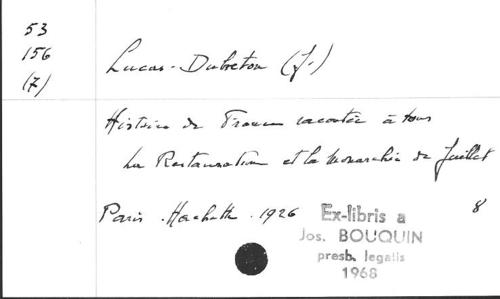 53
156
(7)
Lucas-Dubreton (J.)
Histoire de France racontée à tous
La Restauration et la Monarchie de Juillet
Paris. Hachette. 1926 8
Ex-libris a
Jos. BOUQUIN
presb. legatis
1968